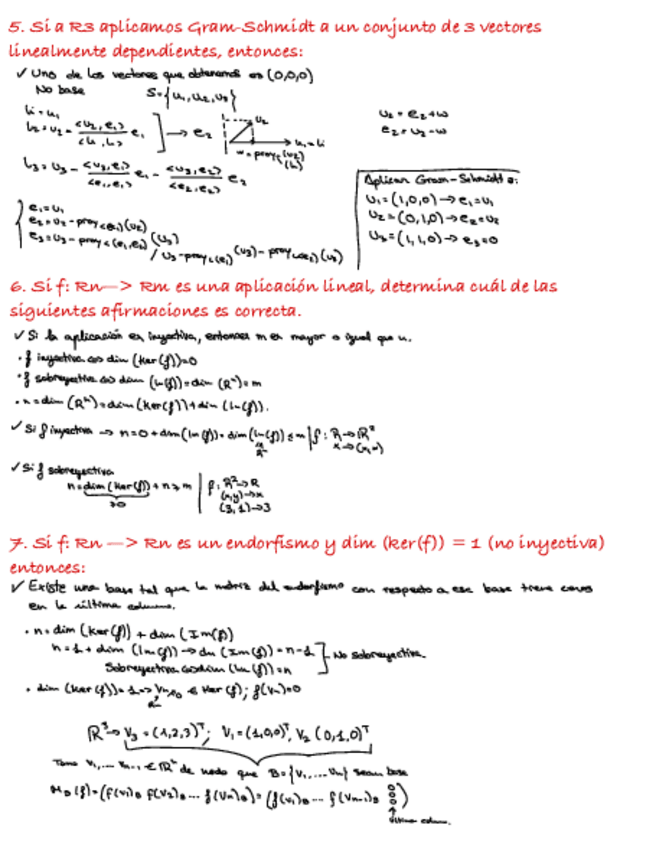 5. Si a R3 aplicamos Gram-Schmidt a un conjunto de 3 vectores
linealmente dependientes, entonces:
✓ Uno de los vectores que obtenemos es (0,0,0)
No base S={u₁,u₂,u₃}
u₂ = e₂+w
e₂ = u₂-w
→ e₂
Aplicar Gram-Schmidt a:
u₁=(1,0,0)→e₁=u₁
u₂=(0,1,0)→e₂=u₂
u₃=(1,1,0)→e₃=0
e₁=u₁
e₂=u₂-proy<e₁>(u₂)
e₃=u₃-proy<(e₁,e₂)(u₃)
6. Si f: Rn—> Rm es una aplicación lineal, determina cuál de las
siguientes afirmaciones es correcta.
✓ Si la aplicación es inyectiva, entonces m es mayor o igual que n.
· f inyectiva ⇔ dim (Ker(f))=0
· f sobreyectiva ⇔ dim (Im(f))=dim (Rᵐ)=m
· n=dim (Rⁿ)=dim(Ker(f))+dim (Im(f)).
✓ Si f inyectiva → n=0+dim(Im(f))=dim(Im(f)) ≤ m | f: R→R²
✓ Si f sobreyectiva
n=dim(Ker(f))+m≥m | f: R²→R
(x,y)→x
(3,1)→3
≥0
7. Si f: Rn —> Rn es un endorfismo y dim (ker(f)) = 1 (no inyectiva)
entonces:
✓ Existe una base tal que la matriz del endorfismo con respecto a esa base tiene ceros
en la última columna.
· n=dim (Ker(f)) + dim (Im(f))
n=1+dim (Im(f))→dim (Im(f))=n-1
No sobreyectiva.
Sobreyectiva ⇔ dim (Im(f))=n
· dim (Ker(f))=1 => vₙ≠0 ∈ Ker(f); f(vₙ)=0
R³→ v₃=(1,2,3)ᵀ; v₁=(1,0,0)ᵀ, v₂ (0,1,0)ᵀ
Tomo v₁,... vₙ₋₁ ∈ Rⁿ de modo que B={v₁,...vₙ} sean base
M_B(f)=(f(v₁)_B f(v₂)_B ... f(vₙ)_B)=(f(v₁)_B ... f(vₙ₋₁)_B 0 0 0)
última colum.